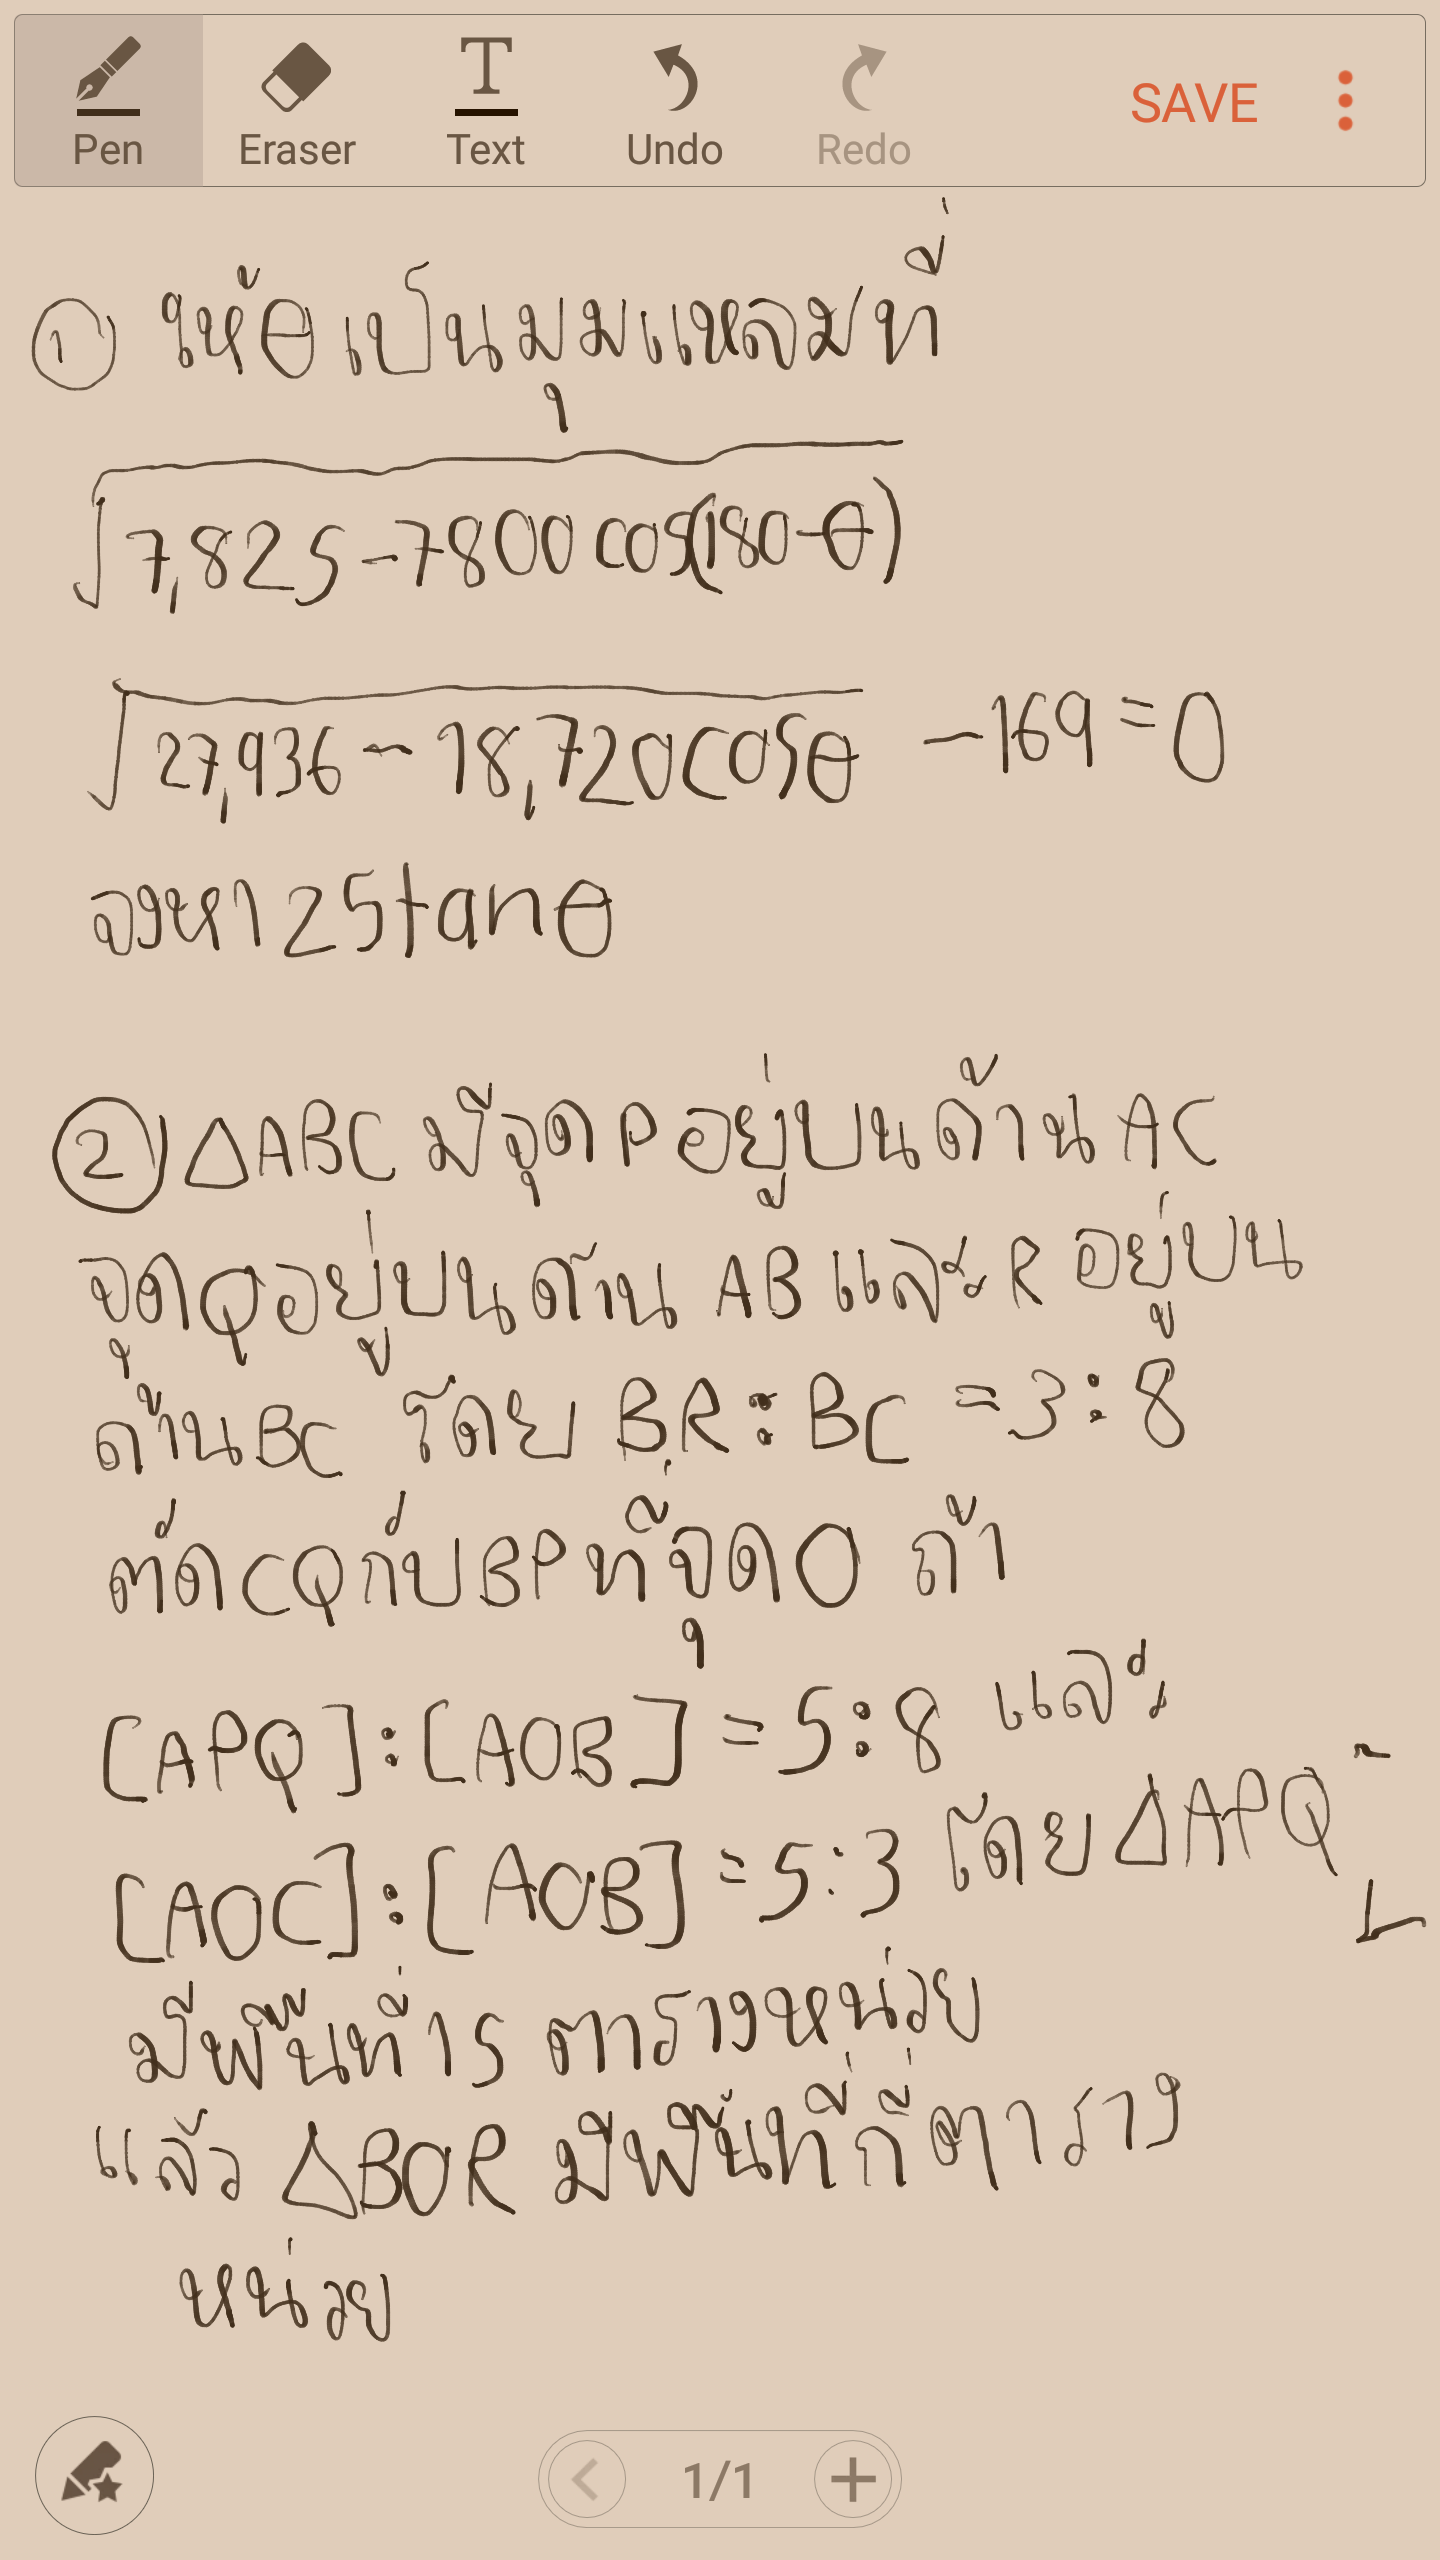 Pen Eraser Text Undo Redo SAVE
① ให้ θ เป็นมุมแหลมที่
√7,825-7800cos(180-θ)
√27,936-18,720cosθ -169=0
จงหา 25tanθ
② △ABC มีจุด P อยู่บนด้าน AC
จุด Q อยู่บนด้าน AB และ R อยู่บน
ด้าน BC โดย BR:BC =3:8
ตัด CQ กับ BP ที่จุด O ถ้า
[APQ]:[AOB] =5:8 และ
[AOC]:[AOB] =5:3 โดย △APQ
มีพื้นที่ 15 ตารางหน่วย
แล้ว △BOR มีพื้นที่กี่ตาราง
หน่วย
1/1